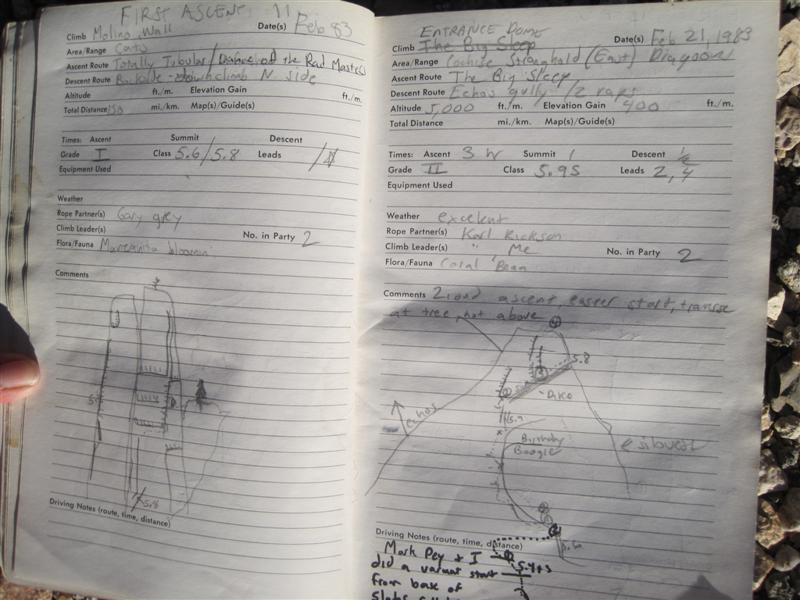 FIRST ASCENT !!
Climb Molino Wall Date(s) Feb 83
Area/Range
Ascent Route Totally Tubular / of the Rad Masters
Descent Route Backside - downclimb N side
Altitude ft./m. Elevation Gain ft./m.
Total Distance 150 mi./km. Map(s)/Guide(s)
Times: Ascent Summit Descent
Grade I Class 5.6/5.8 Leads
Equipment Used
Weather
Rope Partner(s) Gary grey
Climb Leader(s) No. in Party 2
Flora/Fauna Manzanita bloomin'
Comments
5.8
Driving Notes (route, time, distance)
ENTRANCE DOME
Climb The Big Sleep Date(s) Feb 21, 1983
Area/Range Cochise Stronghold (East) Dragoons
Ascent Route The Big Sleep
Descent Route Echos gully / 2 raps
Altitude 5,000 ft./m. Elevation Gain 400 ft./m.
Total Distance mi./km. Map(s)/Guide(s)
Times: Ascent 3 hr Summit 1 Descent 1/2
Grade II Class 5.9S Leads 2, 4
Equipment Used
Weather excelent
Rope Partner(s) Karl Rickson
Climb Leader(s) " Me No. in Party 2
Flora/Fauna Coral Bean
Comments 2cond ascent, easier start, traverse
at tree, not above
5.8
echos
5.9
Birthday
Boogie
Driving Notes (route, time, distance)
5.6
Mark Pey + I
did a variant start
from base of